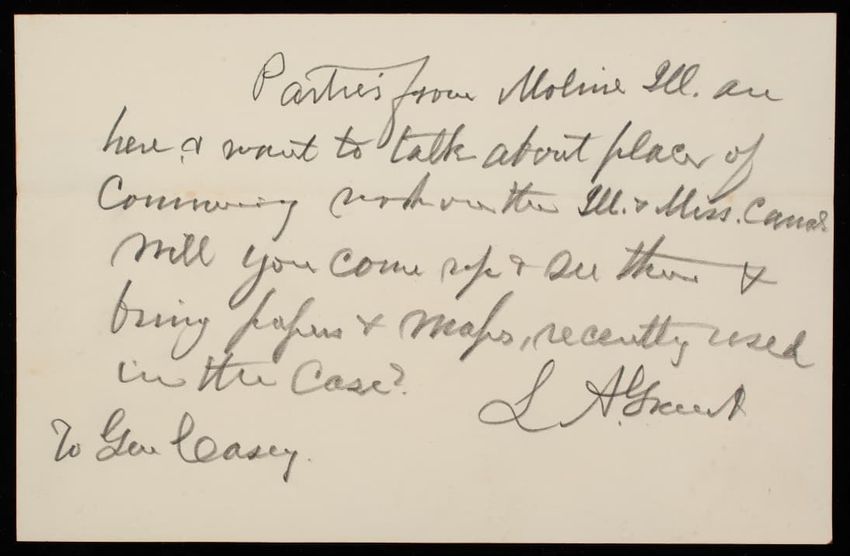 Parties from Moline Ill. are
here, & want to talk about place of
Commencing work on the Ill. & Miss. Canal
Will you come up & see them &
bring papers & maps, recently used
in the case?
L A. Grant
To Gen Casey.